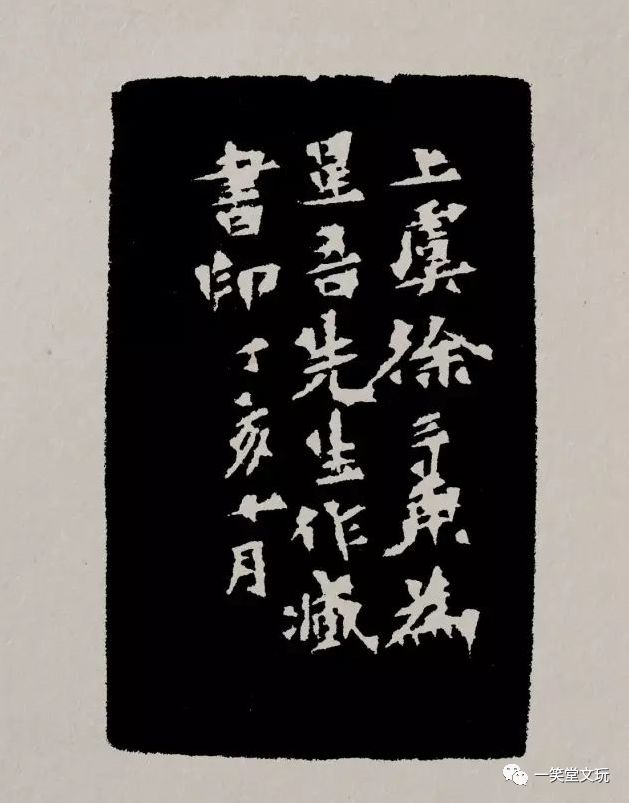 上虞徐三庚為
星吾先生作藏
書印丁亥七月
一笑堂文玩